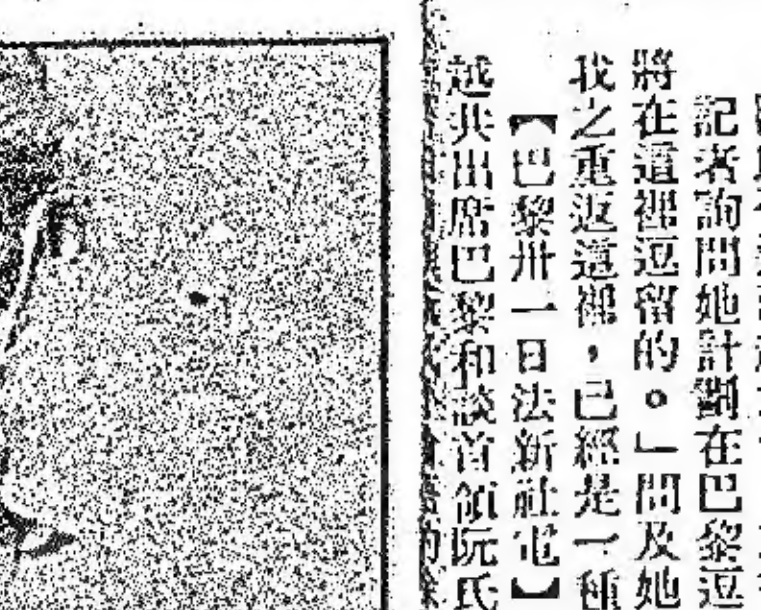 記者詢問她計劃在巴黎逗
將在這裡逗留的。」問及她
我之重返這裡，已經是一種
【巴黎卅一日法新社電】
越共出席巴黎和談首領阮氏